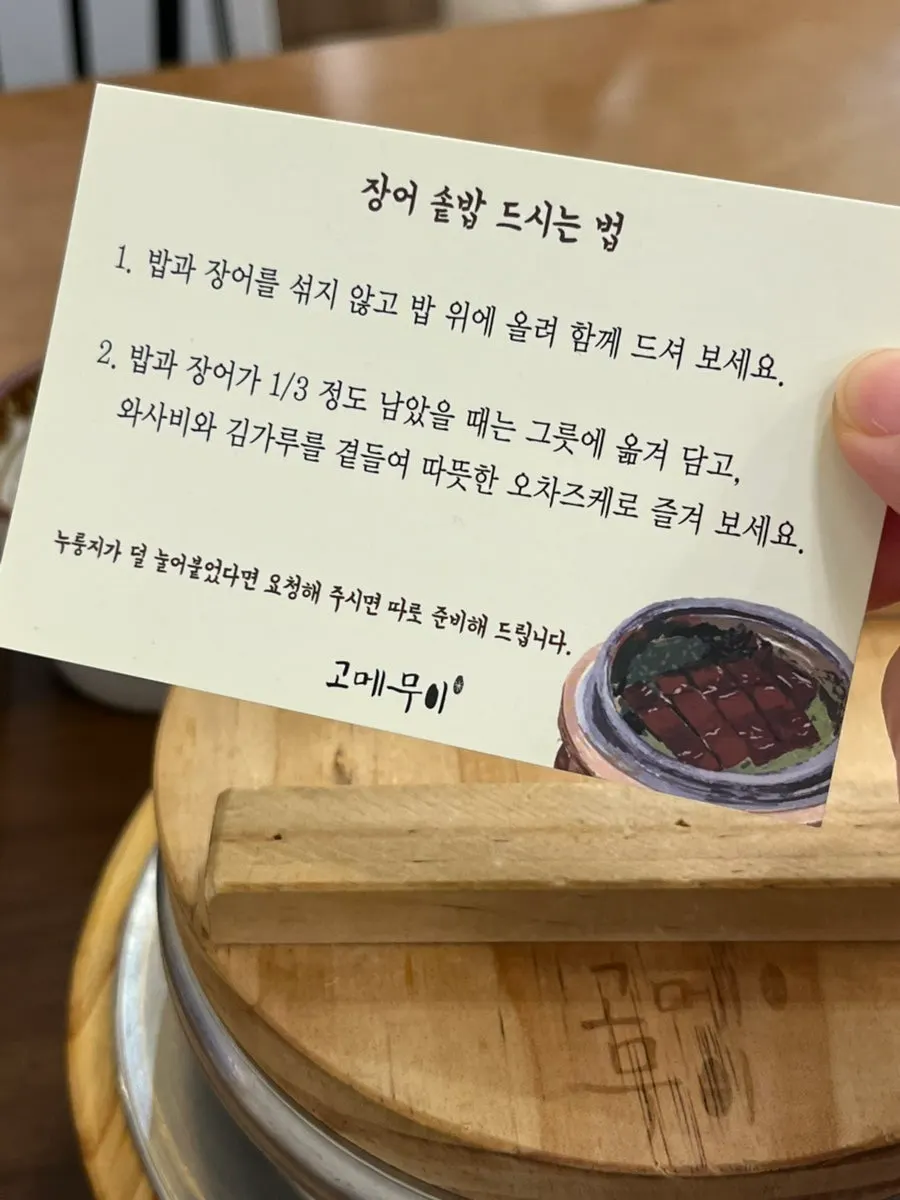 장어 솥밥 드시는 법
1. 밥과 장어를 섞지 않고 밥 위에 올려 함께 드셔 보세요.
2. 밥과 장어가 1/3 정도 남았을 때는 그릇에 옮겨 담고,
와사비와 김가루를 곁들여 따뜻한 오차즈케로 즐겨 보세요.
누룽지가 덜 눌어붙었다면 요청해 주시면 따로 준비해 드립니다.
고메무이
고메
무이